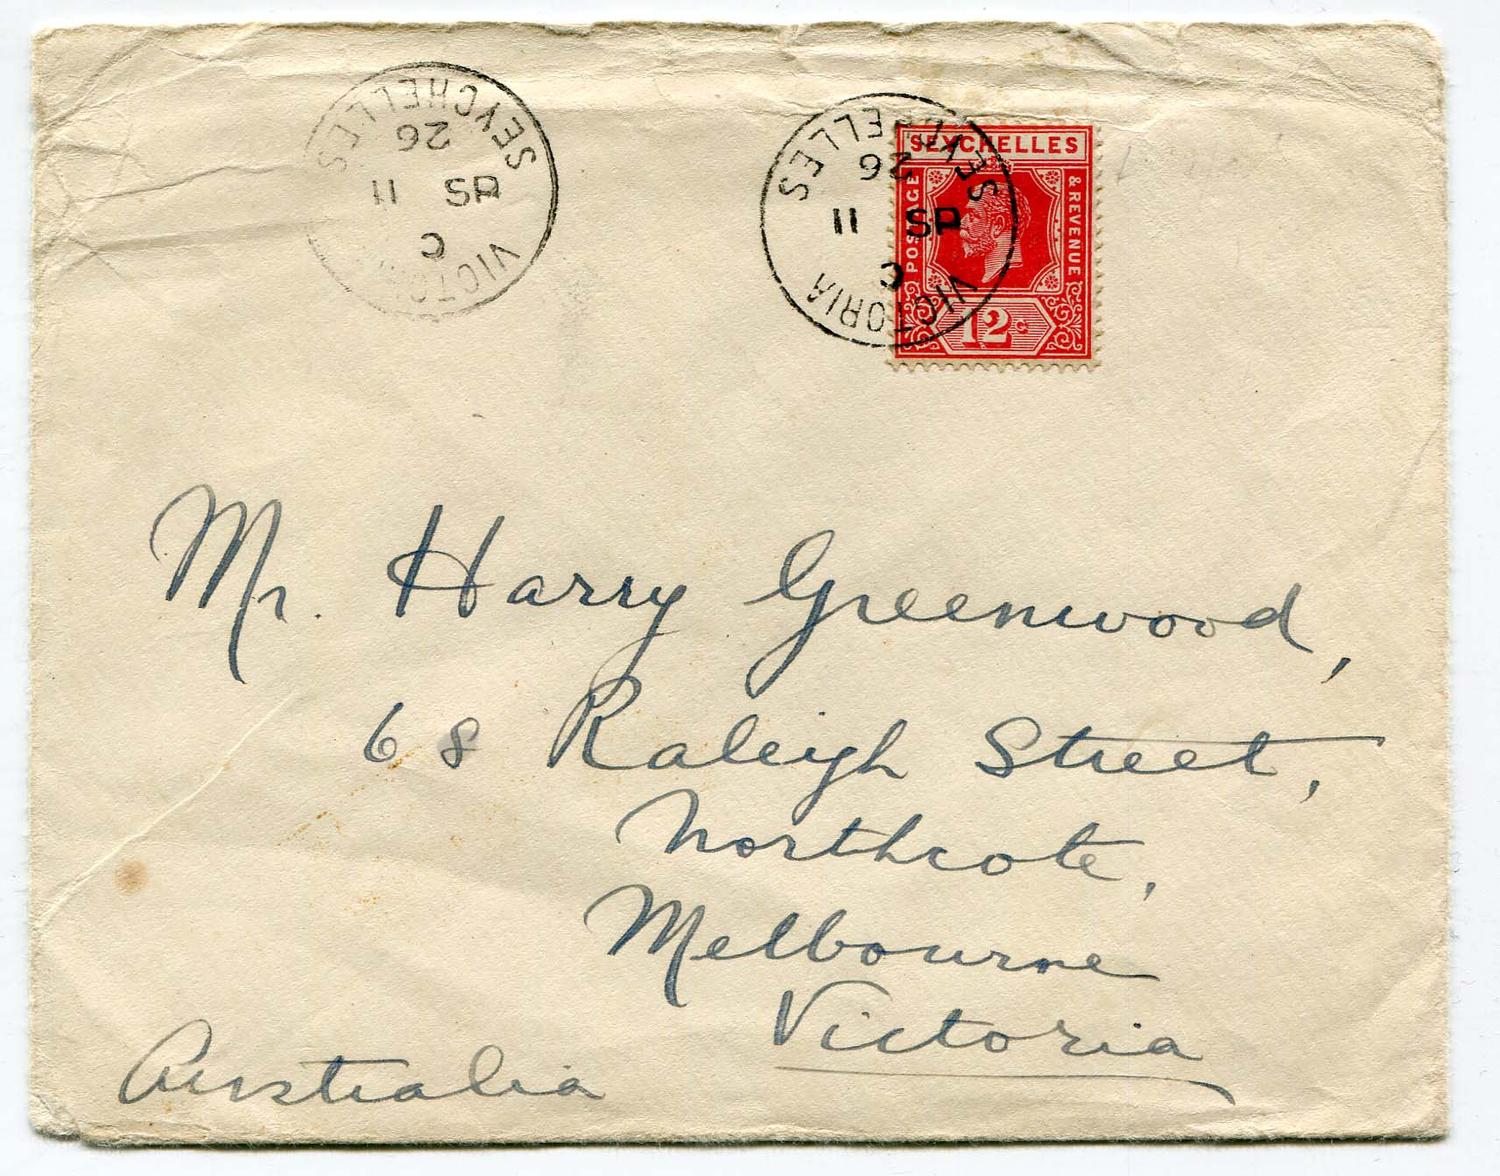 VICTORIA
C
SP 11
26
SEYCHELLES
VICTORIA
C
SP 11
26
SEYCHELLES
SEYCHELLES
POSTAGE & REVENUE
12c
Mr. Harry Greenwood,
68 Raleigh Street,
Northcote,
Melbourne
Victoria
Australia